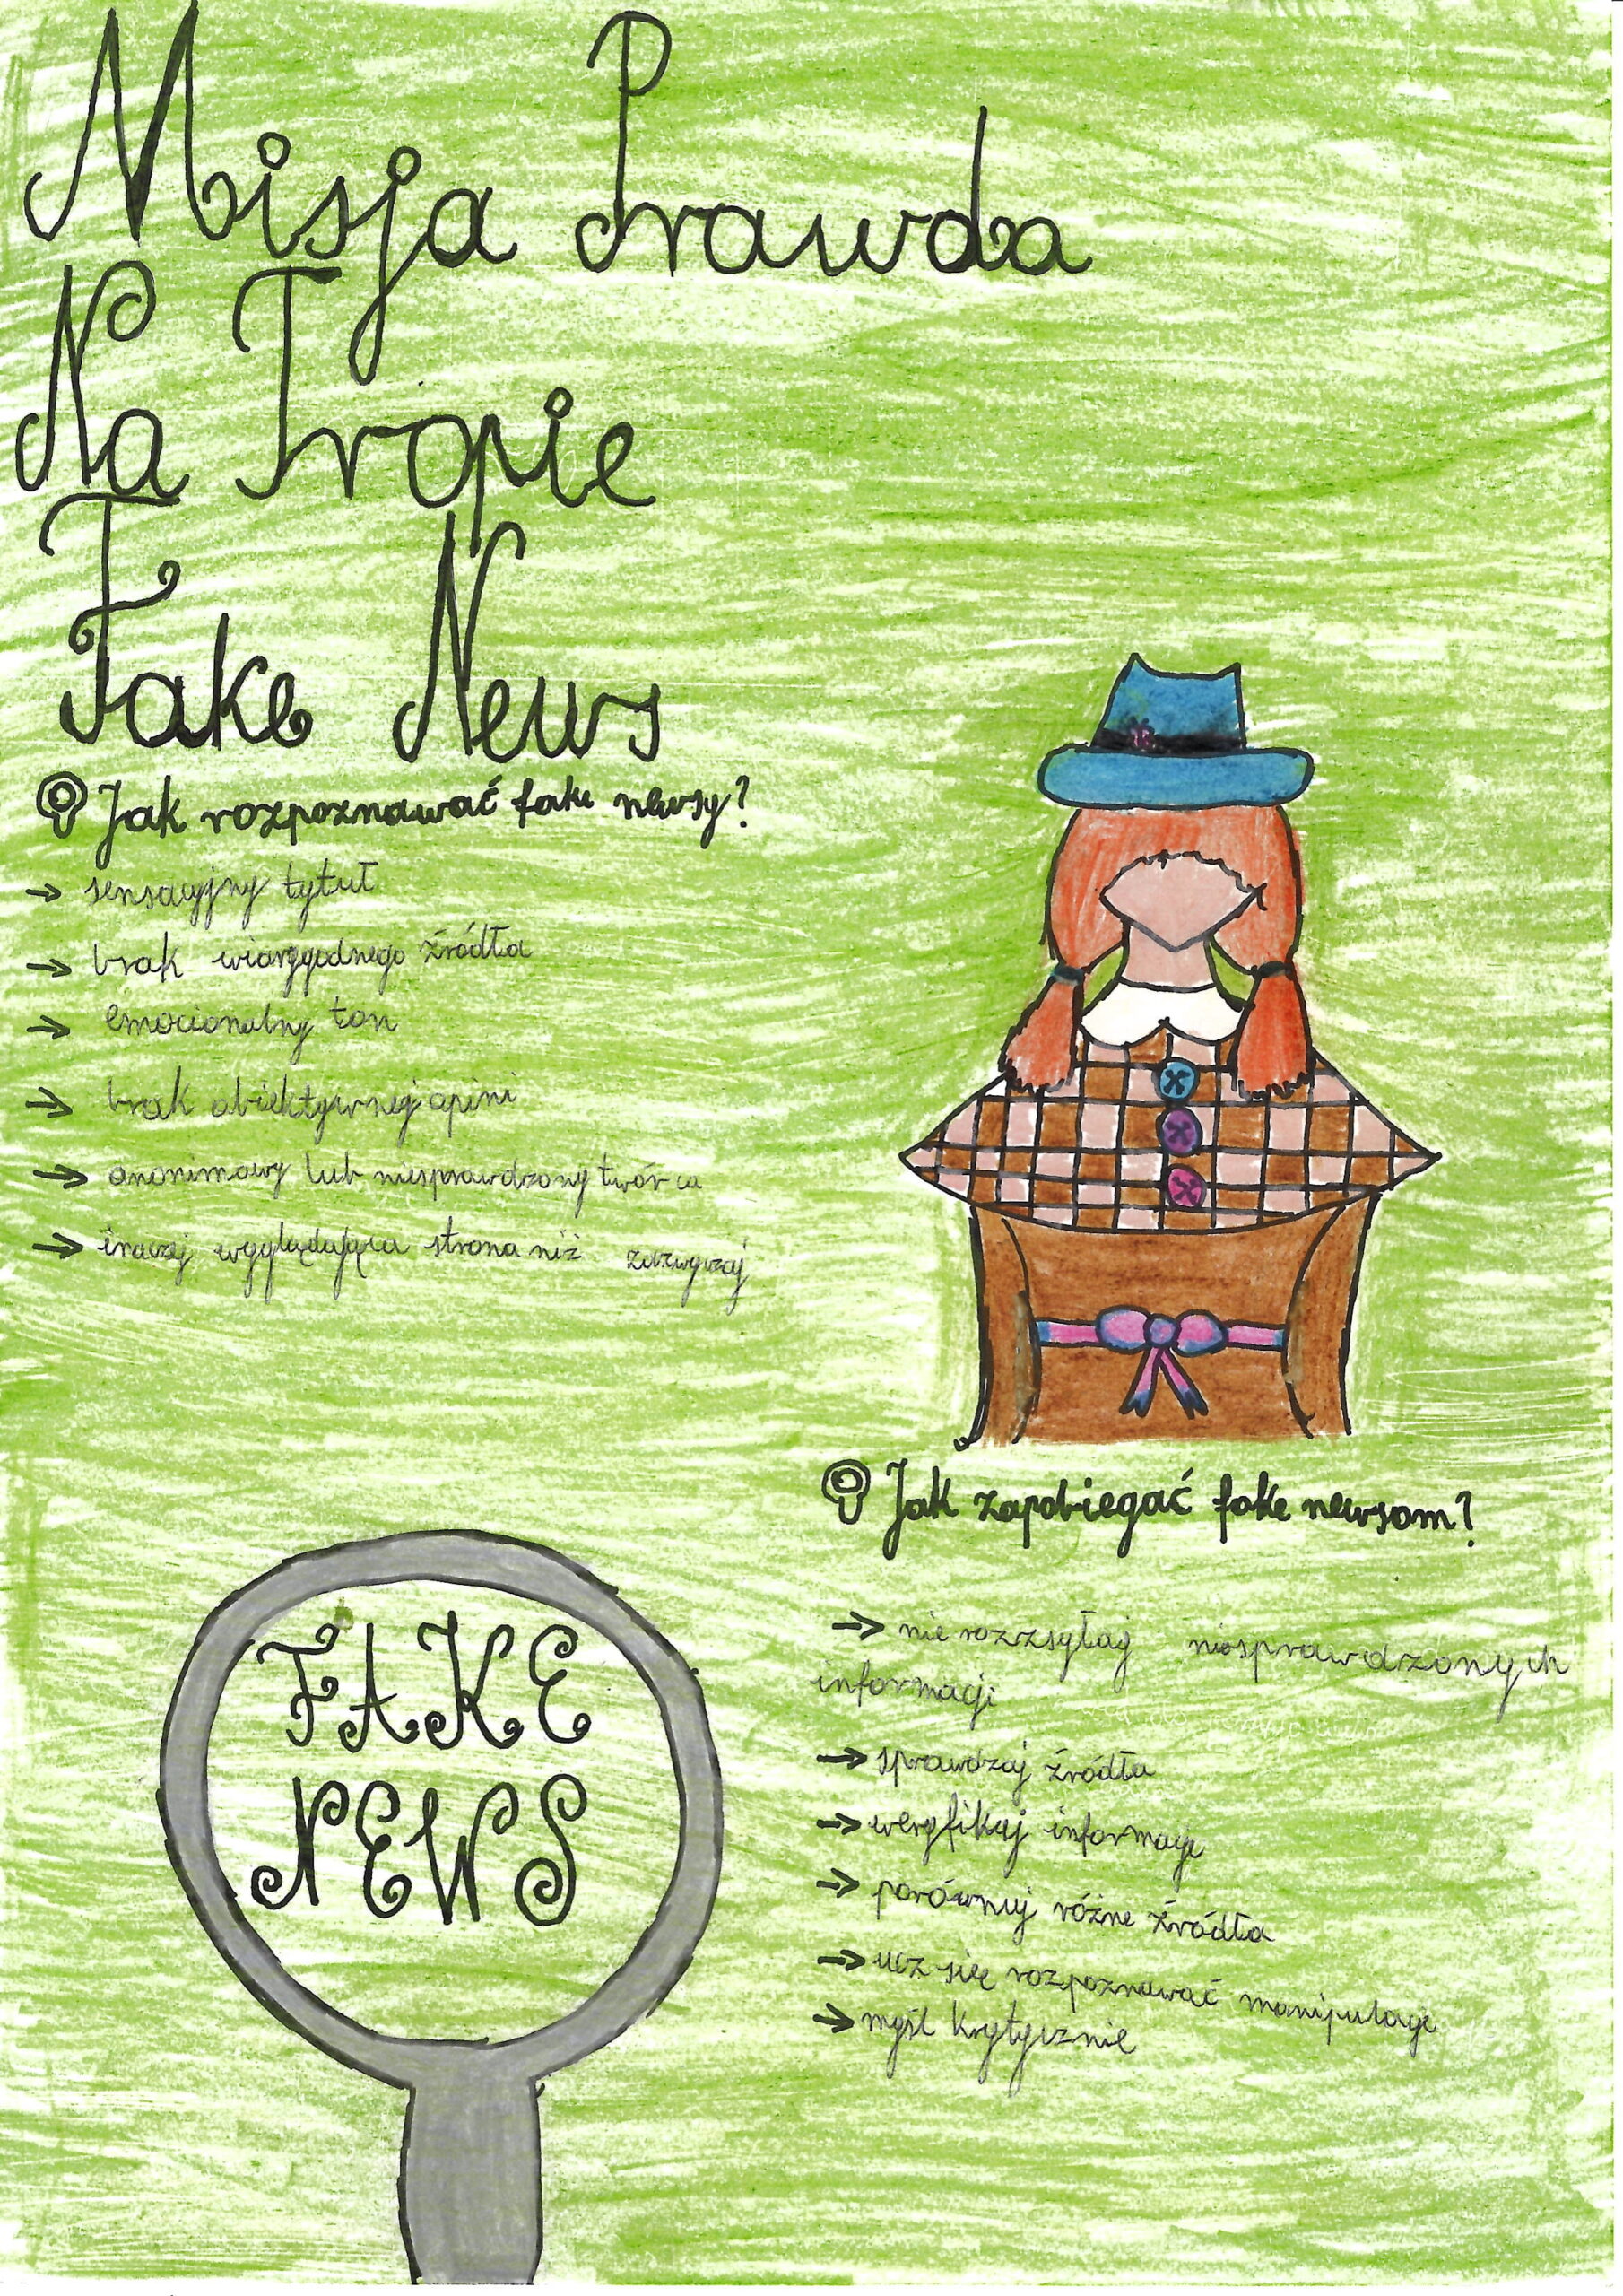 Misja Prawda
Na Tropie
Fake News
Jak rozpoznawać fake newsy?
→ sensacyjny tytuł
→ brak wiarygodnego źródła
→ emocionalny ton
→ brak obiektywnej opini
→ anonimowy lub niesprawdzony twórca
→ inaczej wyglądająca strona niż zazwyczaj
Jak zapobiegać fake newsom?
→ nie rozzsyłaj niesprawdzonych
informacji
→ sprawdzaj źródła
→ weryfikuj informacje
→ porównuj różne źródła
→ ucz się rozpoznawać manipulacje
→ myśl krytycznie
FAKE
NEWS